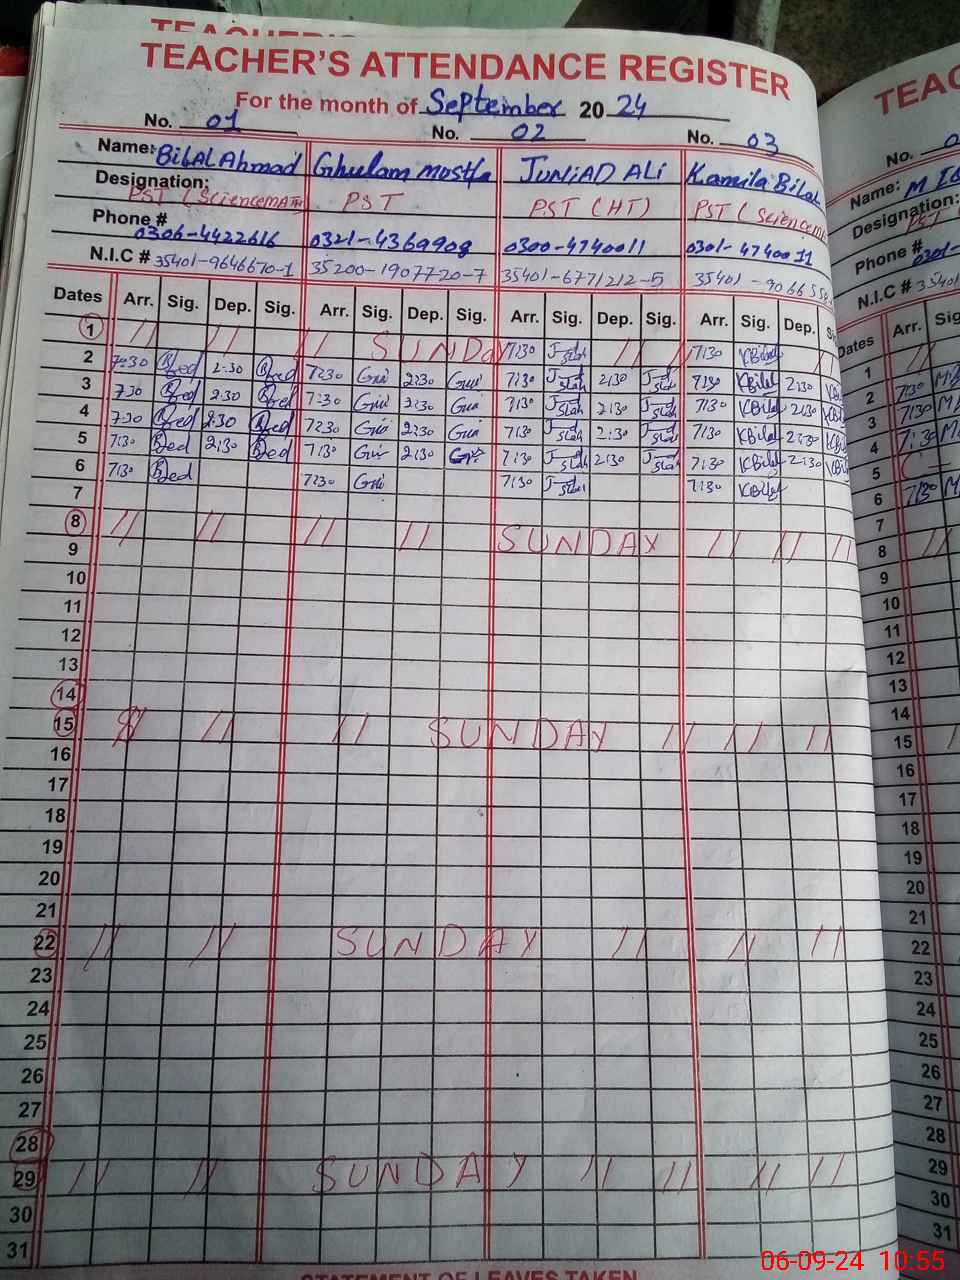 TEACHER'S
TEACHER'S ATTENDANCE REGISTER
For the month of September 2024
No. 01 No. 02 No. 03
Name: Bilal Ahmad Ghulam mostfa JUNIAD ALI Kamila Bilal
Designation: PST (Science PST PST (HT) PST (Sciencem
Phone # 0306-4422616 0321-4369908 0300-4740011 0301-4740011
N.I.C # 35401-9646670-1 35200-1907720-7 35401-6771212-5 35401-90665
Dates Arr. Sig. Dep. Sig. Arr. Sig. Dep. Sig. Arr. Sig. Dep. Sig. Arr. Sig. Dep.
1 // // // SUNDAY // //
2 7:30 2:30 7:30 2:30 7:30 7:30 KBilal
3 7:30 2:30 7:30 2:30 7:30 2:30 7:30 KBilal 2:30
4 7:30 2:30 7:30 2:30 7:30 2:30 7:30 KBilal 2:30
5 7:30 2:30 7:30 2:30 7:30 2:30 7:30 KBilal 2:30
6 7:30 7:30 2:30 7:30 2:30 7:30 KBilal 2:30
7 7:30 7:30 7:30 KBilal
8 // // // // SUNDAY // // //
9
10
11
12
13
14
15 // // // SUNDAY // // //
16
17
18
19
20
21
22 // // SUNDAY // // //
23
24
25
26
27
28
29 // // SUNDAY // // // //
30
31
STATEMENT OF LEAVES TAKEN
TEAC
No.
Name: M
Designation:
Phone # 0301-
N.I.C # 35401
Dates Arr.
1 //
2 7:30
3 7:30
4 7:30
5
6 7:30
7
8 //
9
10
11
12
13
14
15
16
17
18
19
20
21
22
23
24
25
26
27
28
29
30
31
06-09-24 10:55